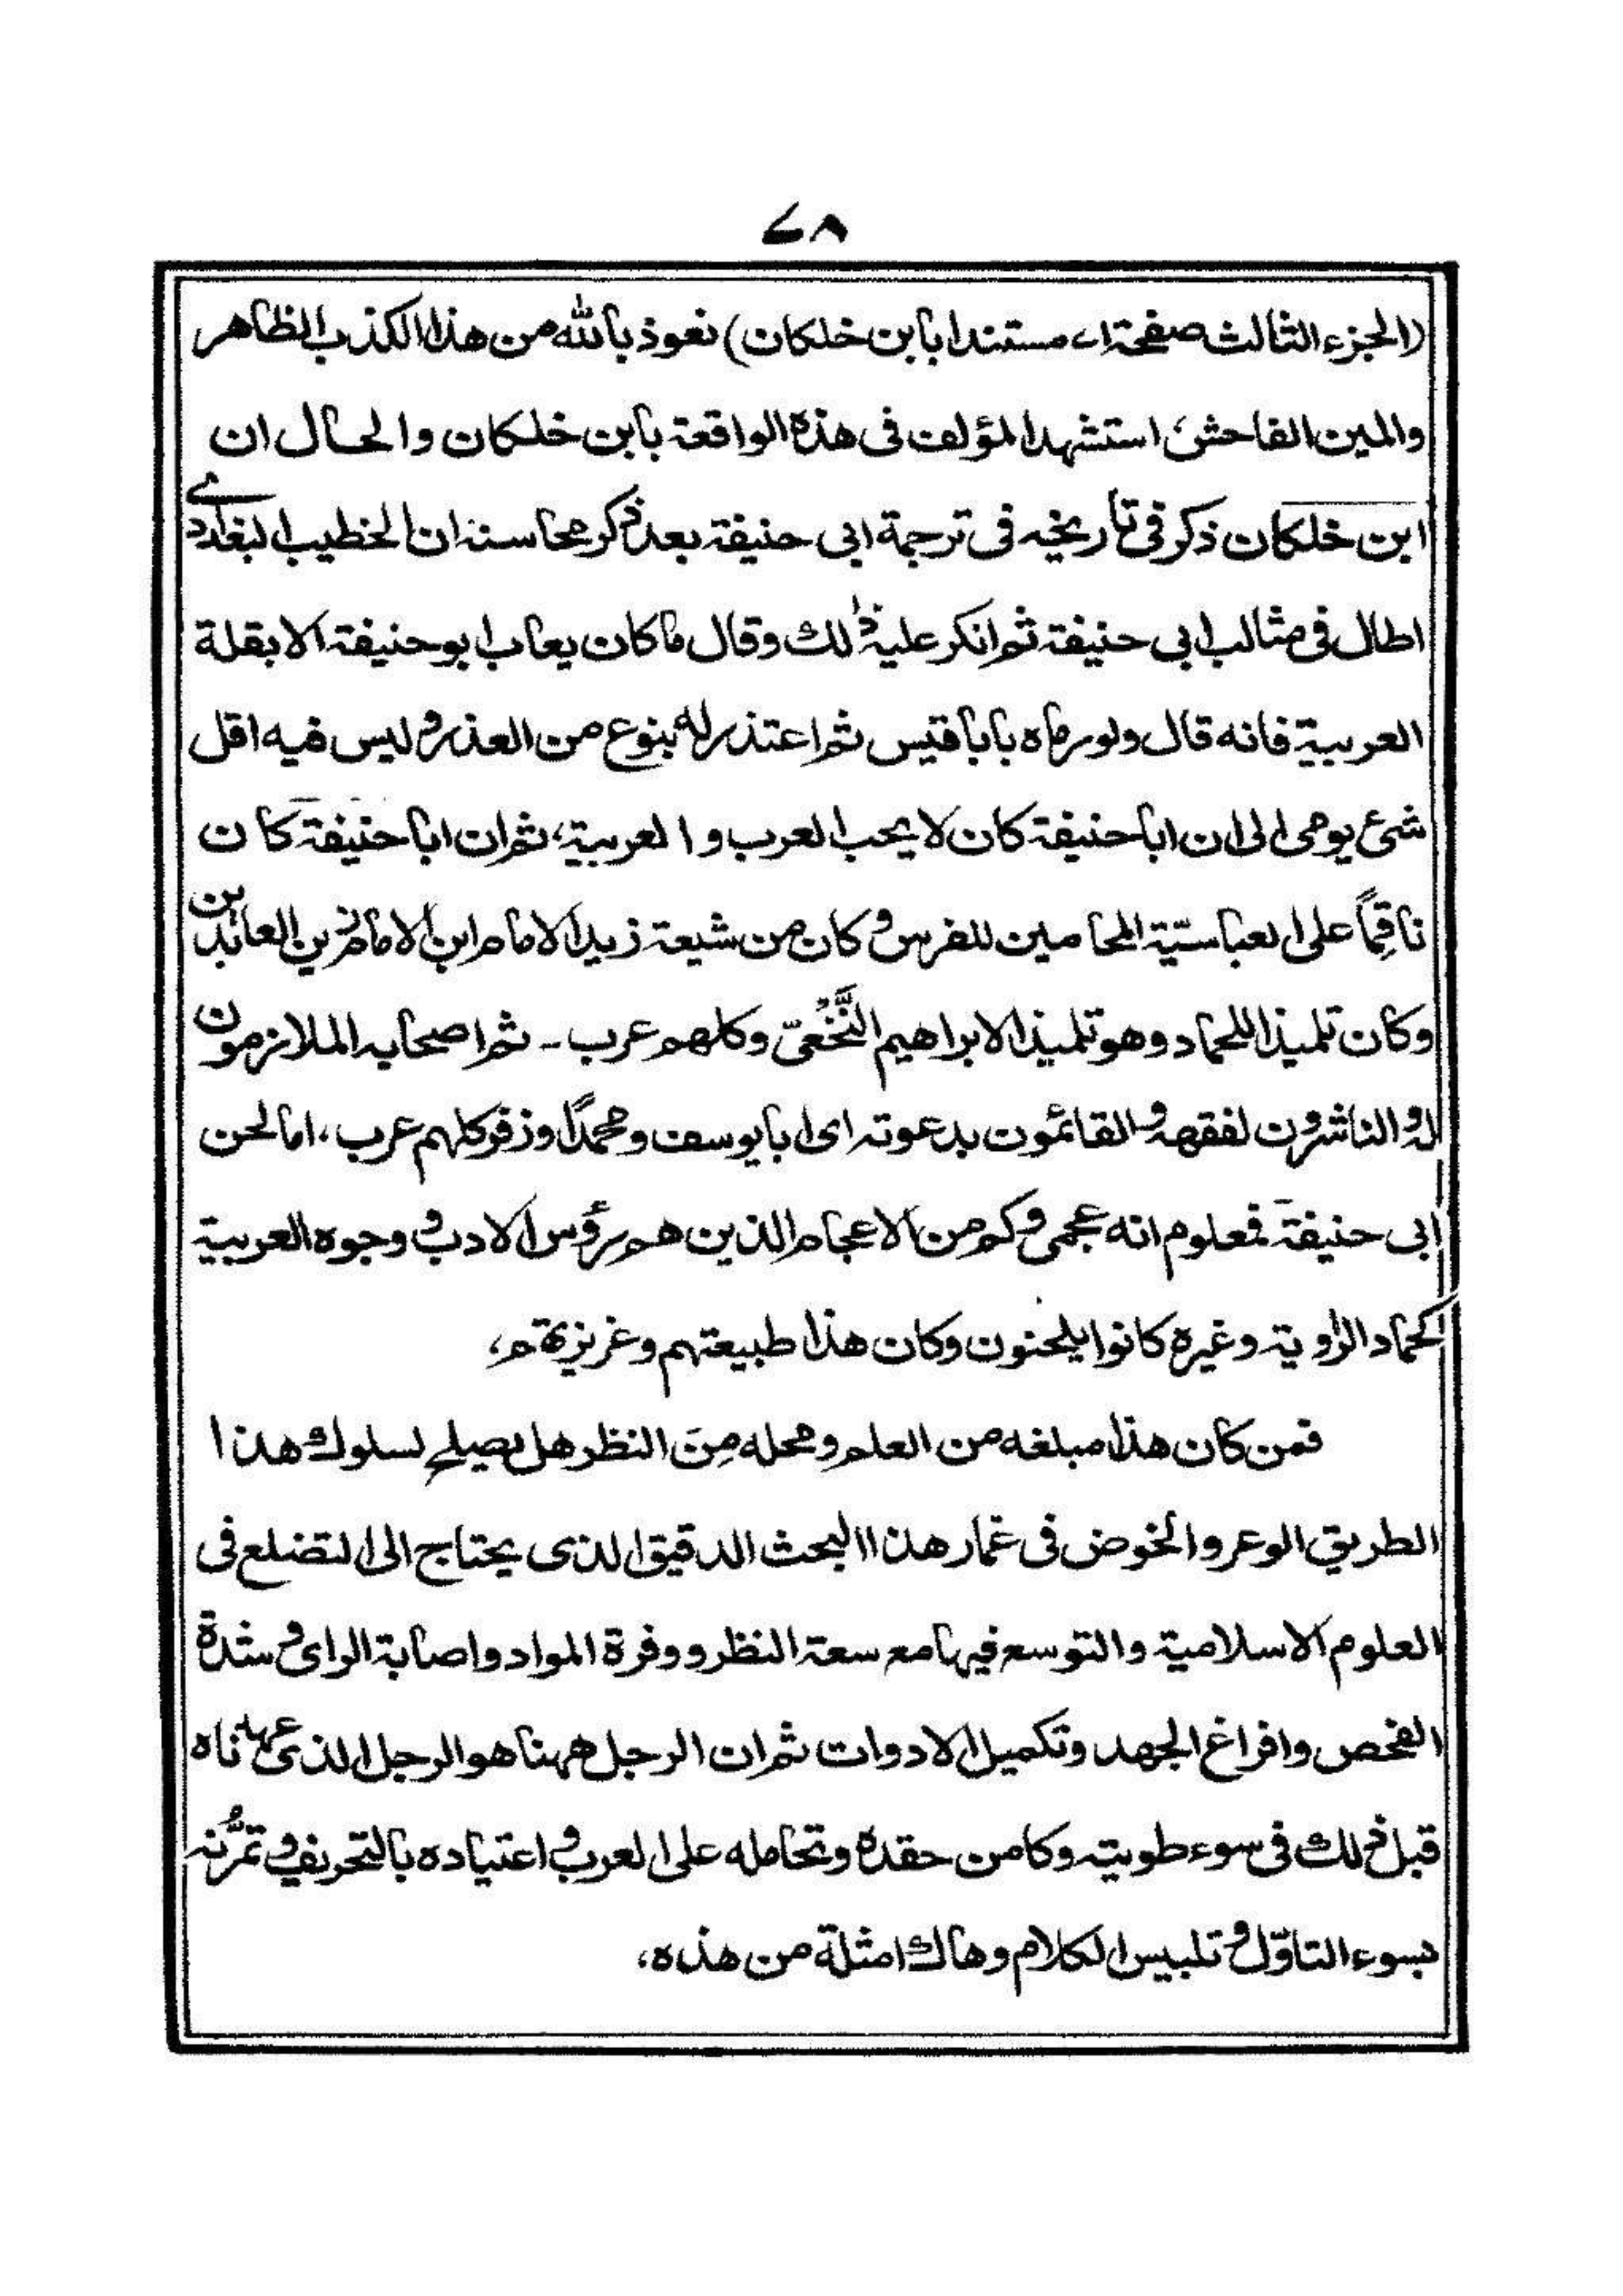 ٧٨
(الجزء الثالث صفحة ٧١ مستندا بابن خلكان) نعوذ بالله من هذا الكذب الظاهر
والمين الفاحش، استشهد المؤلف فى هذه الواقعة بابن خلكان والحال ان
ابن خلكان ذكر فى تاريخه فى ترجمة ابى حنيفة بعد ذكر محاسنه ان الخطيب البغدادى
اطال فى مثالب ابى حنيفة ثم انكر عليه ذلك وقال ما كان يعاب ابو حنيفة الا بقلة
العربية فانه قال ولو رماه بابا قبيس ثم اعتذر له بنوع من العذر وليس فيه اقل
شئ يومى الى ان ابا حنيفة كان لا يحب العرب والعربية، ثم ان ابا حنيفة كان
ناقِماً على العباسيّة المحامين للفرس وكان من شيعة زيد الامام ابن الامام زين العابدين
وكان تلميذا للحماد وهو تلميذ الابراهيم النَّخْعىّ وكلهم عرب - ثم اصحابه الملازمون
له والناشرون لفقهه والقائمون بدعوته اى ابا يوسف ومحمداً وزفر كلهم عرب، اما لحن
ابى حنيفة فمعلوم انه عجمى وكم من الاعجام الذين هم رؤس الادب ووجوه العربية
كحماد الراوية وغيره كانوا يلحنون وكان هذا طبيعتهم وغريزتهم،
فمن كان هذا مبلغه من العلم ومحله مِنَ النظر هل يصلح لسلوك هذا
الطريق الوعر والخوض فى غمار هذا البحث الدقيق الذى يحتاج الى التضلع فى
العلوم الاسلامية والتوسع فيها مع سعة النظر ووفرة المواد واصابة الراى وشدة
الفحص وافراغ الجهد وتكميل الادوات ثم ان الرجل ههنا هو الرجل الذى عهدناه
قبل ذلك فى سوء طويته وكامن حقده وتحامله على العرب واعتياده بالتحريف وتمرُّنه
بسوء التاوّل وتلبيس الكلام وهاك امثلة من هذه،